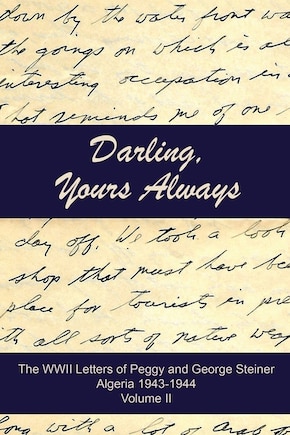 down by the water front wa
the goings on which is al
interesting occupation in
hat reminds me of one
Darling,
Yours Always
day off. We took a look
shop that must have bee
place for tourists in pre
ith all sorts of native weap
The WWII Letters of Peggy and George Steiner
Algeria 1943-1944
Volume II
long with a lot of Arab